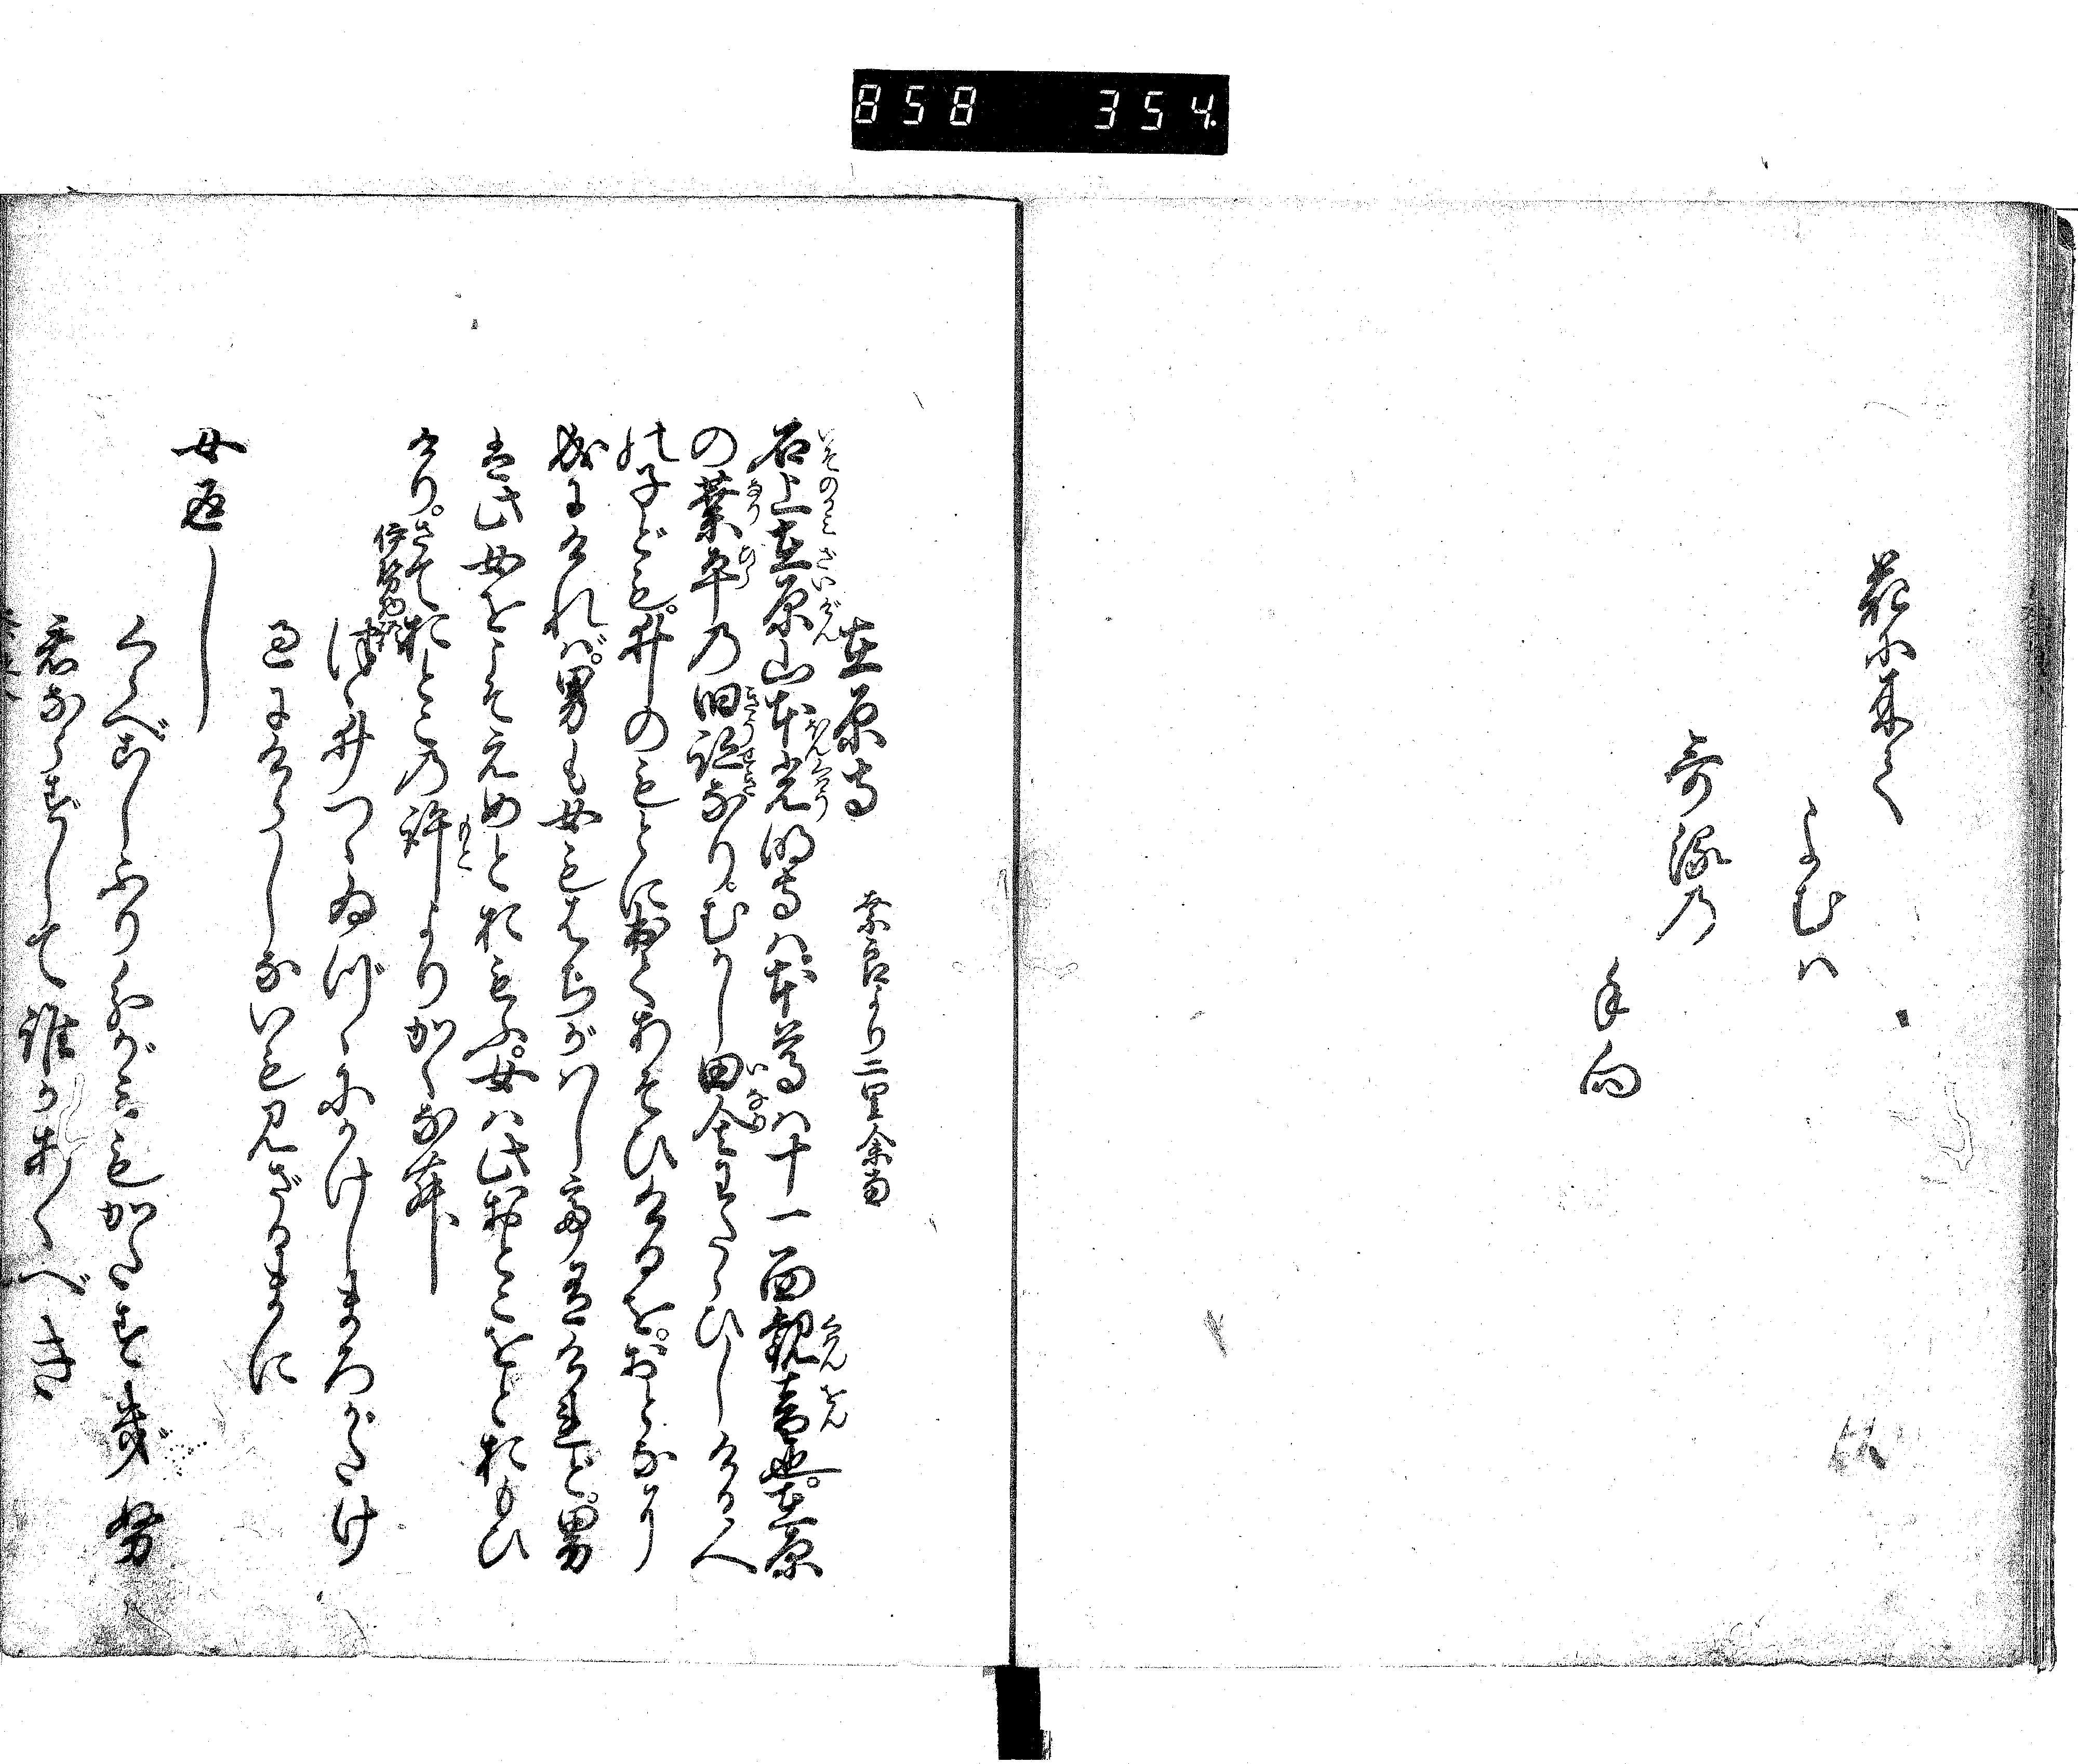 858 354
花に来て
よむは
哥塚乃
手向
在原寺 奈良より二里余南
石上在原山本光明寺は本尊は十一面観音也。在原
の業平乃旧跡なり。むかし田舎わたらひしける人
の子ども。井のもとに出てあそひけるを。おとなに
成にければ。男も女もはぢかはして有けれど。男
は此女をこそえめとおもふ。女は此おとこをとおもひ
けり。さておとこの許よりかくなむ
伊勢物語
つゝ井つゝゐづゝにかけしまろがたけ
過にけらしないも見ざるまに
女返し
くらべこしふりわけがみもかたすぎぬ
君ならずして誰かあくべき